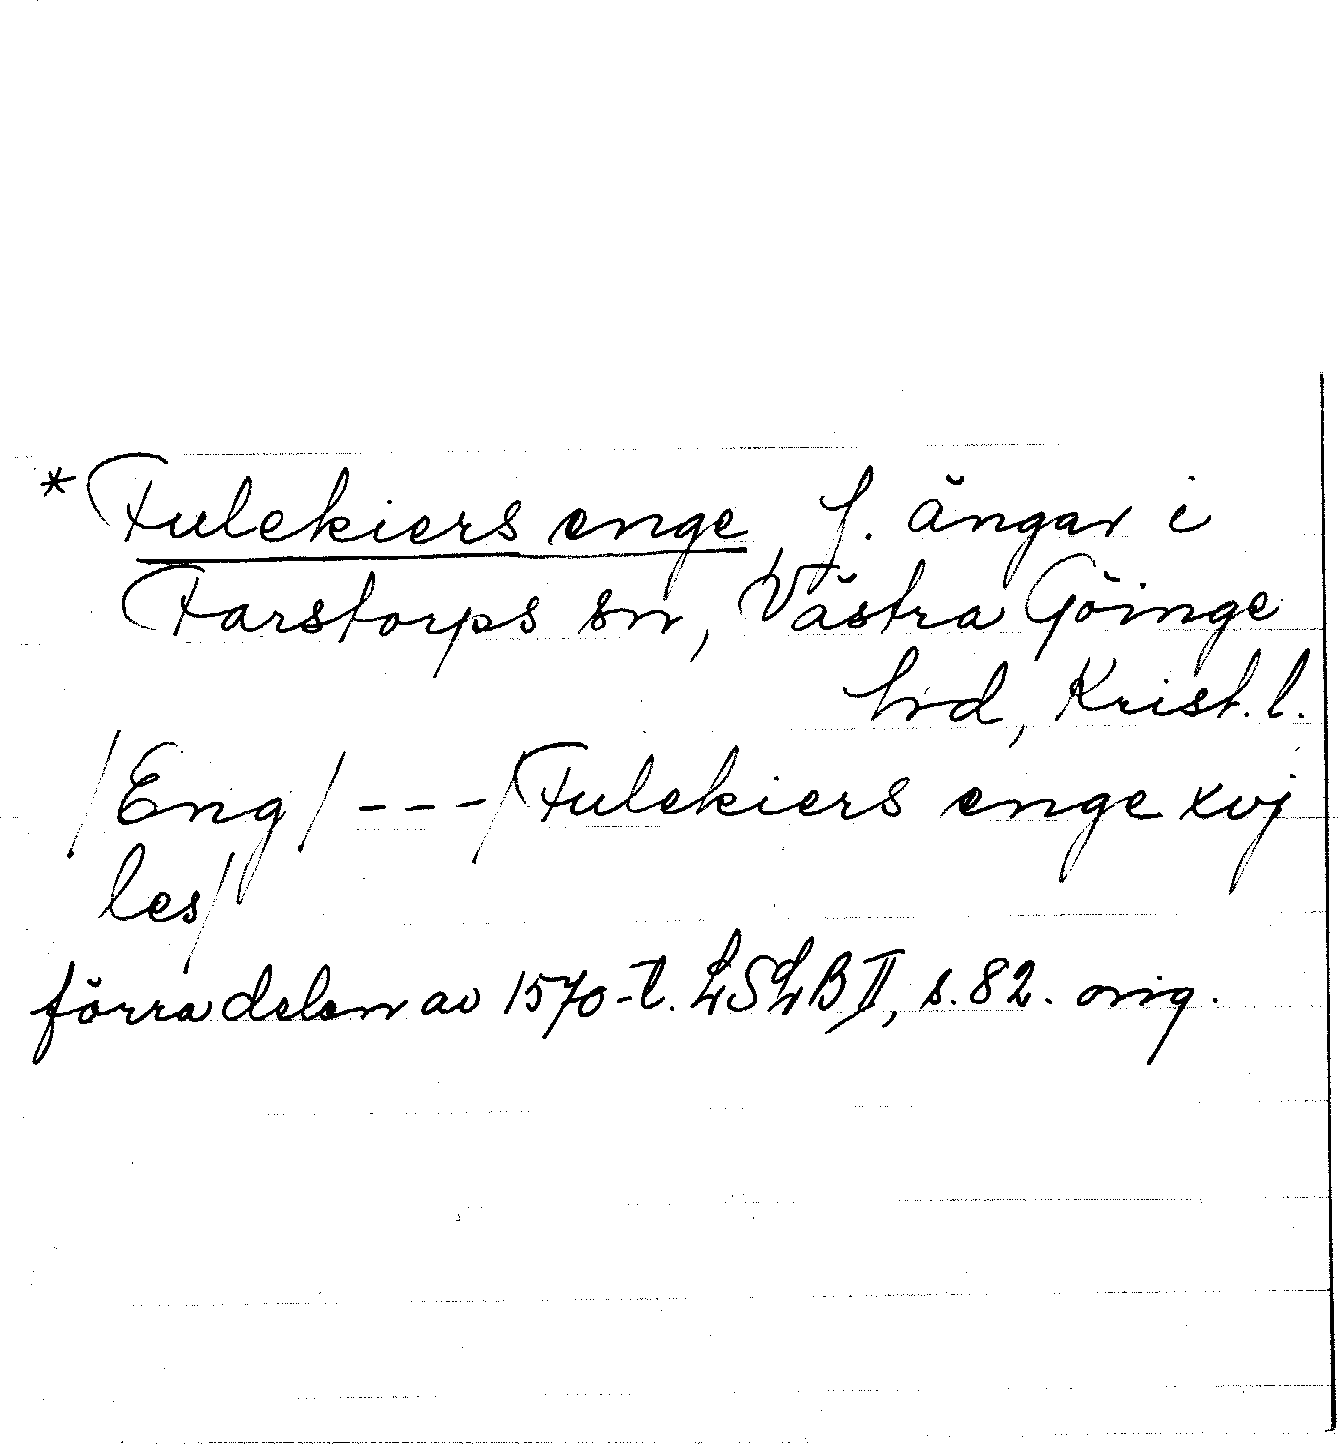 * Fulekiers enge, f. ängar i
Farstorps sn, Västra Göinge
hrd, Krist. l.
/Eng/ --- /Fulekiers enge xvj
les/
förra delen av 1570-t. LSLB II, s. 82. orig.